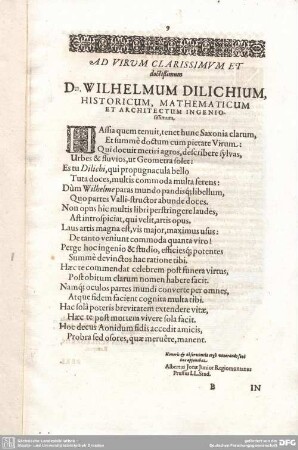 9
AD VIRUM CLARISSIMUM ET
doctissimum
Dn. WILHELMUM DILICHIUM,
HISTORICUM, MATHEMATICUM
ET ARCHITECTUM INGENIO-
sissimum.
HAssia quem tenuit, tenet hunc Saxonia clarum,
Et summè doctum cum pietate Virum:
Qui docuit metiri agros, describere sylvas,
Urbes & fluvios, ut Geometra solet:
Es tu Dilichi, qui propugnacula bello
Tuta doces, multis commoda multa ferens:
Dùm Wilhelme paras mundo pandisq; libellum,
Quo partes Valli-structor abunde doces.
Non opus hic multis libri perstringere laudes,
Ast introspiciat, qui velit, artis opus.
Laus artis magna est, vis major, maximus usus:
De tanto veniunt commoda quanta viro!
Perge hoc ingenio & studio, efficiesq; potentes
Summè devinctos hac ratione tibi.
Hæc te commendat celebrem post funera virtus,
Post obitum clarum nomen habere facit.
Namq; oculos partes mundi converte per omnes,
Atque fidem facient cognita multa tibi.
Hæc sola poteris brevitatem extendere vitæ,
Hæc te post mortem vivere sola facit.
Hoc decus Aonidum fidis accedit amicis,
Probra sed osores, quæ meruêre, manent.
Honoris & observantiæ ergò
Albertus Jonæ Junior Regiomontanus
Prussus LL. Stud.
B
IN